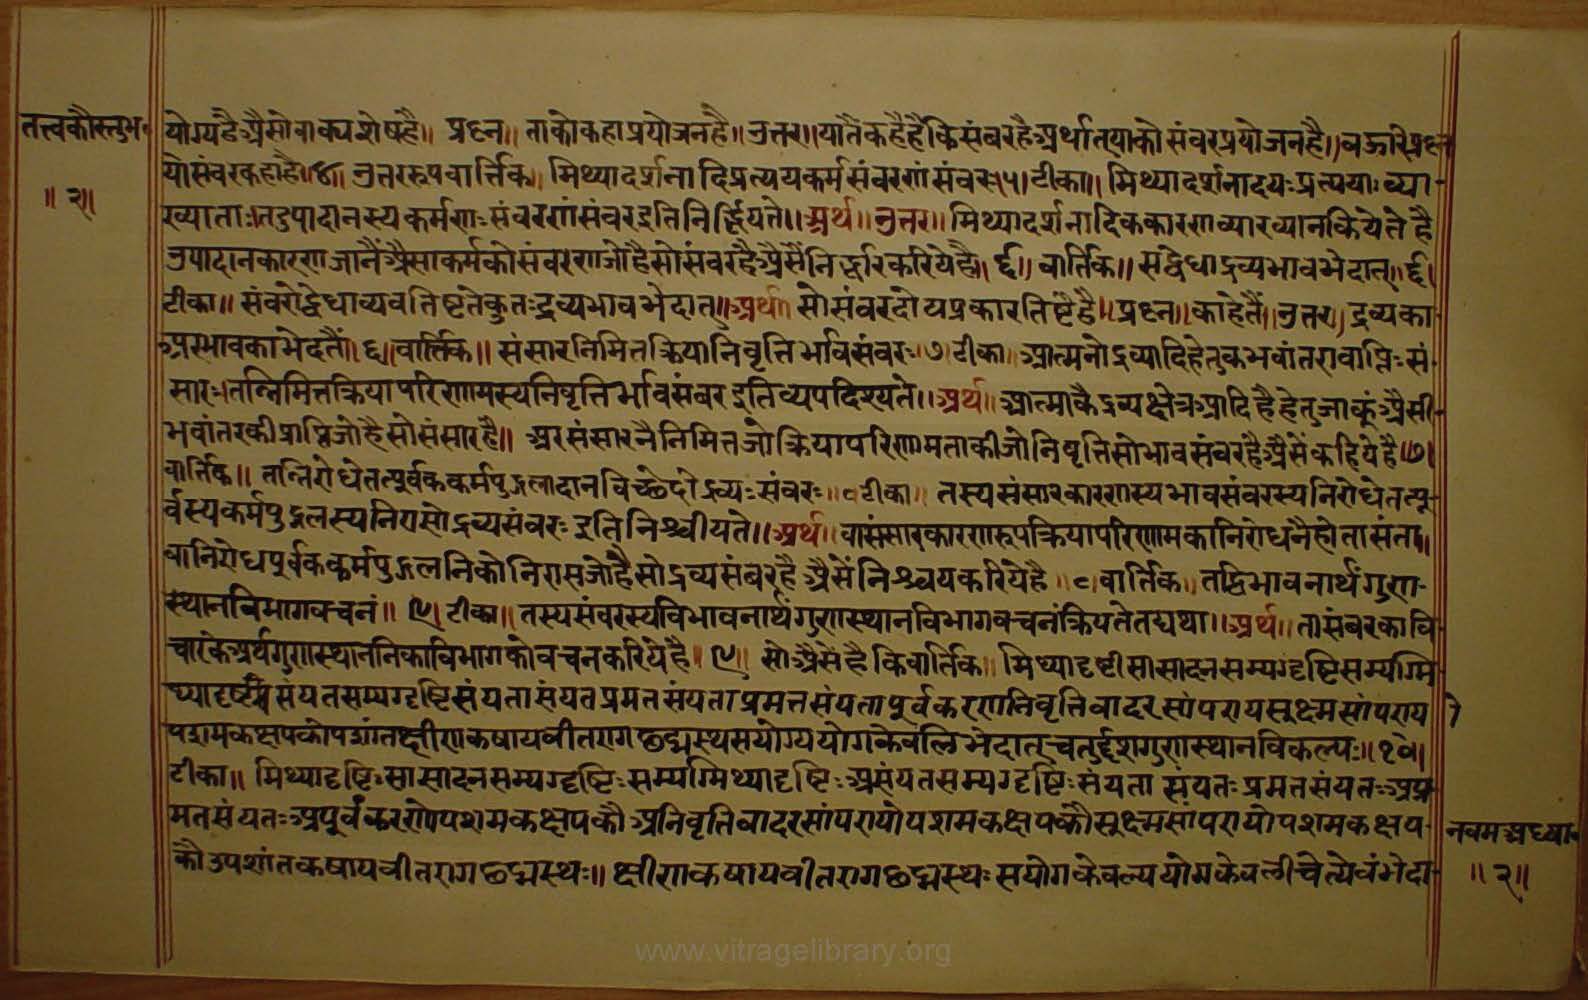 तत्त्वकौस्तुभ॰
॥२॥
योग्यहै ऐसोवाक्यशेषहै॥ प्रश्न॥ ताकोकहाप्रयोजनहै॥ उत्तर॥ यातैंकहैहैकिसंवरहै अर्थात्याकोसंवरप्रयोजनहै॥ वऊरिप्रश्न
योसंवरकहाहै॥४॥ उत्तररूपवार्त्तिक॥ मिथ्यादर्शनादिप्रत्ययकर्मसंवरणंसंवरः।५। टीका॥ मिथ्यादर्शनादयःप्रत्ययाः व्या-
ख्याताः।तदुपादानस्यकर्मणःसंवरणंसंवरइतिनिर्द्ध्रियते॥ अर्थ॥ उत्तर॥ मिथ्यादर्शनादिककारणव्याख्यानकियेतेहै
उपादानकारणजानैंऐसाकर्मकोसंवरणजोहैसोसंवरहैऐसैंनिर्द्धारकरियेहै॥ वार्तिक॥ सद्वेधाद्रव्यभावभेदात्॥६।
टीका॥ संवरोद्वेधाव्यवतिष्टतेकुतःद्रव्यभावभेदात्॥ अर्थ॥ सोसंवरदोयप्रकारतिष्टैहै॥ प्रश्न॥ काहेतैं॥ उत्तर॥ द्रव्यका
अरभावकाभेदतैं॥६॥ वार्तिक॥ संसारनिमित्तक्रियानिवृत्तिर्भावसंवरः।७। टीका॥ आत्मनोद्रव्यादिहेतुकभवांतरावाप्तिःसं-
सारः।तन्निमित्तक्रियापरिणामस्यनिवृत्तिर्भावसंवरइतिव्यपदिश्यते॥ अर्थ॥ आत्माकैद्रव्यक्षेत्रआदिहैहेतुजाकूंऐसी
भवांतरकीप्राप्तिजोहैसोसंसारहै॥ अरसंसारनैनिमित्तजोक्रियापरिणामताकीजोनिवृत्तिसोभावसंवरहैऐसेंकहियेहै॥७।
वार्तिक॥ तन्निरोधेतत्पूर्वककर्मपुद्गलादानविच्छेदोद्रव्यःसंवरः॥८ टीका॥ तस्यसंसारकारणस्यभावसंवरस्यनिरोधेतत्पू-
र्वस्यकर्मपुद्गलस्यनिरासोद्रव्यसंवरःइतिनिश्चीयते॥ अर्थ॥ वासंसारकारणरूपक्रियापरिणामकानिरोधनैहोतासंता
वानिरोधपूर्वककर्मपुद्गलनिकोनिरासजोहैसोद्रव्यसंवरहै ऐसेंनिश्चयकरियेहै॥८ वार्तिक॥ तद्विभावनार्थंगुण-
स्थानविभागवचनं॥९॥ टीका॥ तस्यसंवरस्यविभावनार्थंगुणस्थानविभागवचनंक्रियतेतद्यथा॥ अर्थ॥ तासंवरकावि-
चारकेअर्थगुणस्थाननिकाविभागकोवचनकरियेहै॥९॥ सोऐसेंहैकिवार्तिक॥ मिथ्यादृष्टीसासादनसम्यग्दृष्टिसम्यग्मि-
थ्यादृष्ट्यसंयतसम्यग्दृष्टिसंयतासंयतप्रमत्तसंयताप्रमत्तसंयतापूर्वकरणानिवृत्तिवादरसांपरायसूक्ष्मसांपराय
पशमकक्षपकोपशांतक्षीणकषायवीतरागछद्मस्थसयोग्ययोगकेवलिभेदात्चतुर्द्दशगुणस्थानविकल्पः॥१०॥
टीका॥ मिथ्यादृष्टिःसासादनसम्यग्दृष्टिःसम्यग्मिथ्यादृष्टिःअसंयतसम्यग्दृष्टिःसंयतासंयतःप्रमत्तसंयतःअप्र-
मत्तसंयतःअपूर्वकरणोपशमकक्षपकौअनिवृत्तिवादरसांपरायोपशमकक्षपकौसूक्ष्मसांपरायोपशमकक्षप-
कौउपशांतकषायवीतरागछद्मस्थः॥ क्षीणकषायवीतरागछद्मस्थःसयोगकेवल्ययोगकेवलीचेत्येवंभेदा-
नवमअध्या॰
॥२॥
www.vitragelibrary.org